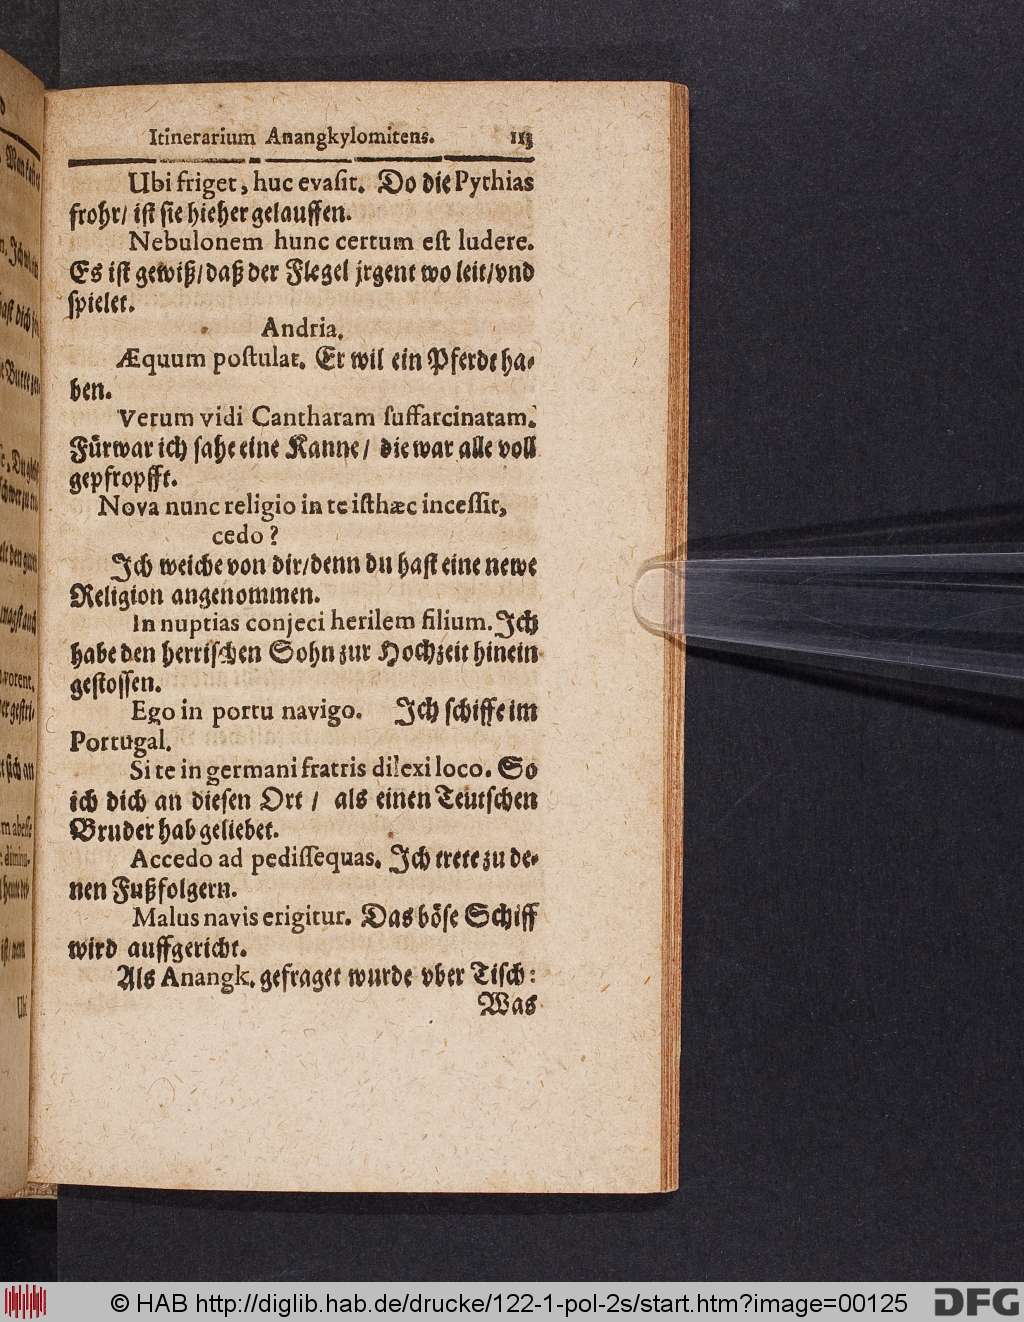 Itinerarium Anangkylomitens. 113
Ubi friget, huc evasit. Do die Pythias
frohr/ ist sie hieher gelauffen.
Nebulonem hunc certum est ludere.
Es ist gewiß/ daß der Flegel jrgent wo leit/ vnd
spielet.
Andria.
Æquum postulat. Er wil ein Pferde ha-
ben.
Verum vidi Cantharam suffarcinatam.
Fürwar ich sahe eine Kanne/ die war alle voll
gepfropfft.
Nova nunc religio in te isthæc incessit,
cedo?
Ich weiche von dir/ denn du hast eine newe
Religion angenommen.
In nuptias conjeci herilem filium. Ich
habe den herrischen Sohn zur Hochzeit hinein
gestossen.
Ego in portu navigo. Ich schiffe im
Portugal.
Si te in germani fratris dilexi loco. So
ich dich an diesen Ort / als einen Teutschen
Bruder hab geliebet.
Accedo ad pedissequas. Ich trete zu de-
nen Fußfolgern.
Malus navis erigitur. Das böse Schiff
wird auffgericht.
Als Anangk. gefraget wurde vber Tisch:
Was
© HAB http://diglib.hab.de/drucke/122-1-pol-2s/start.htm?image=00125
DFG